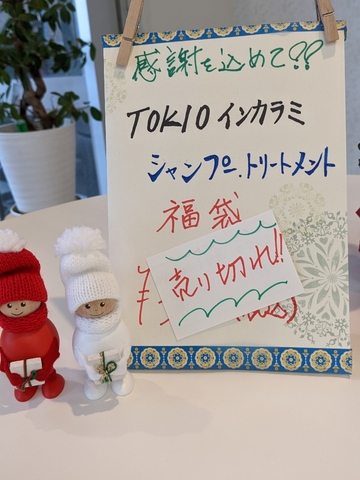 感謝を込めて??
TOKIO インカラミ
シャンプー.トリートメント
福袋
売り切れ!!
¥
(税込)